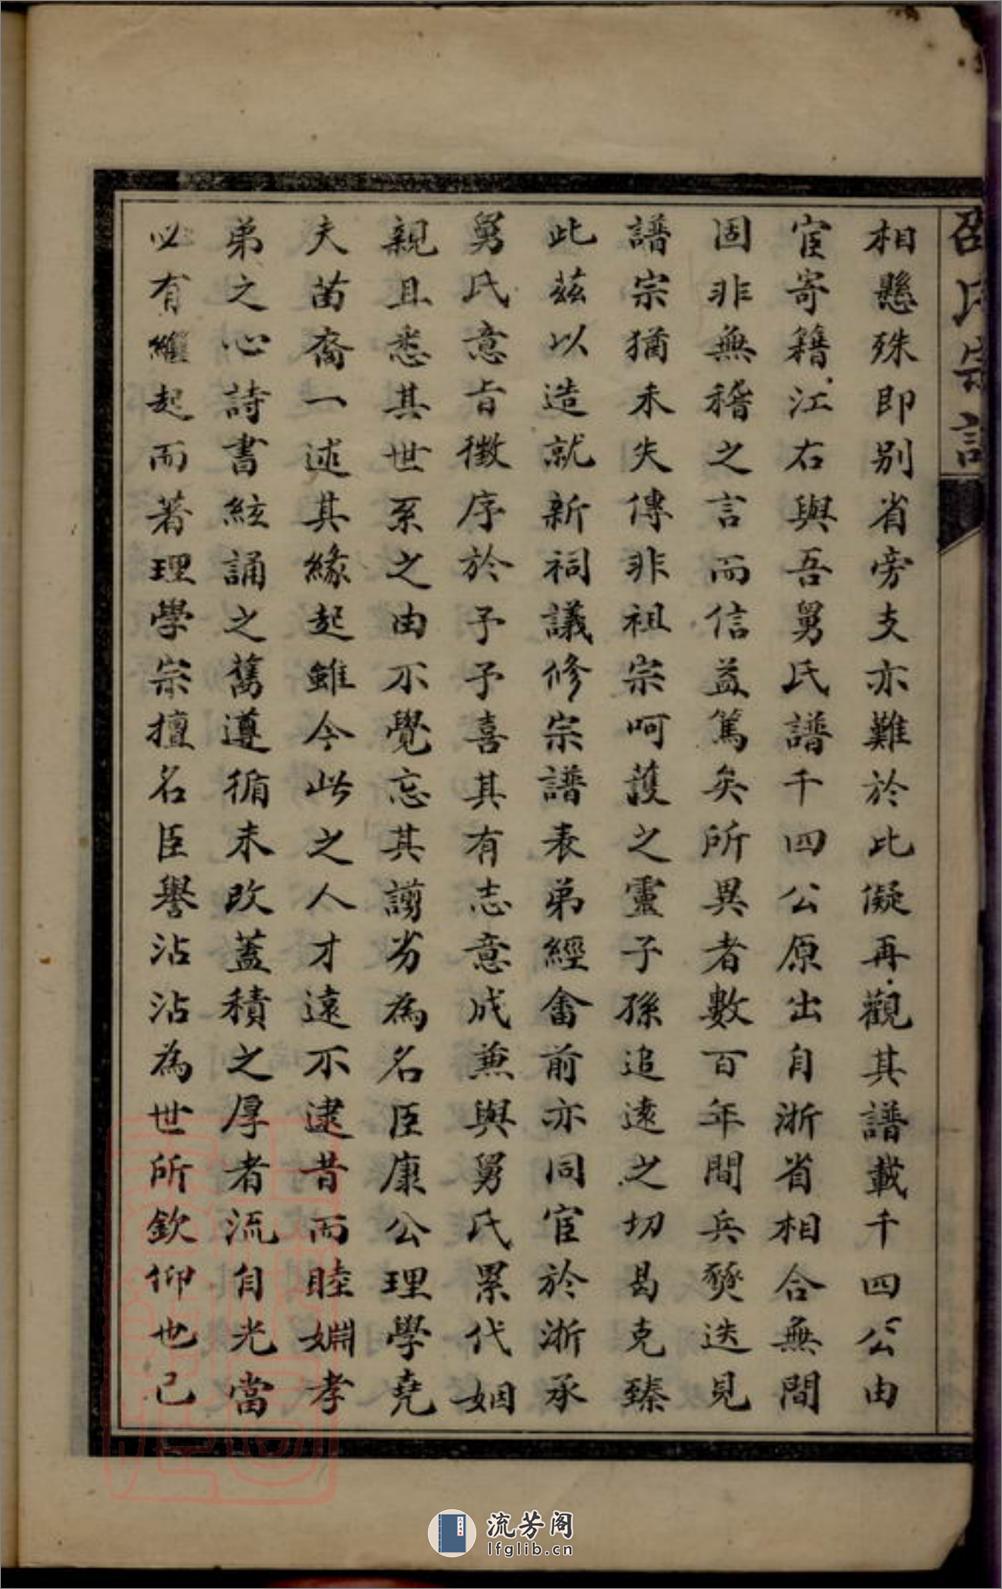 邵氏宗譜
相懸殊即别省旁支亦難於此儗再觀其譜載千四公由
宦寄籍江右與吾舅氏譜千四公原出自浙省相合無間
固非無稽之言而信益篤矣所異者數百年間兵燹迭見
譜宗猶未失傳非祖宗呵護之靈子孫追遠之切曷克臻
此茲以造就新祠議修宗譜表弟經畬前亦同宦於浙承
舅氏意旨徵序於予予喜其有志意成兼與舅氏累代姻
親且悉其世系之由不覺忘其謭劣為名臣康公理學堯
夫苗裔一述其緣起雖今此之人才遠不逮昔而睦婣孝
弟之心詩書絃誦之舊遵循未改蓋積之厚者流自光當
必有繼起而著理學宗擅名臣譽沾沾為世所欽仰也已
流芳阁
lfglib.cn